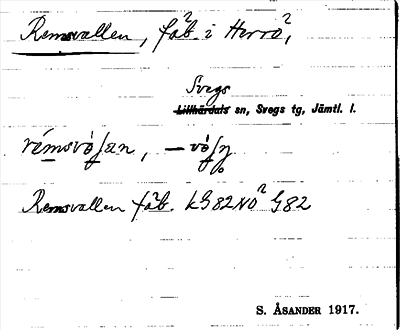 Remsvallen, fäb. i Herrö,
Svegs
Lillhärdals sn, Svegs tg, Jämtl. l.
Remsvallen fäb. kG82NO G82
S. ÅSANDER 1917.